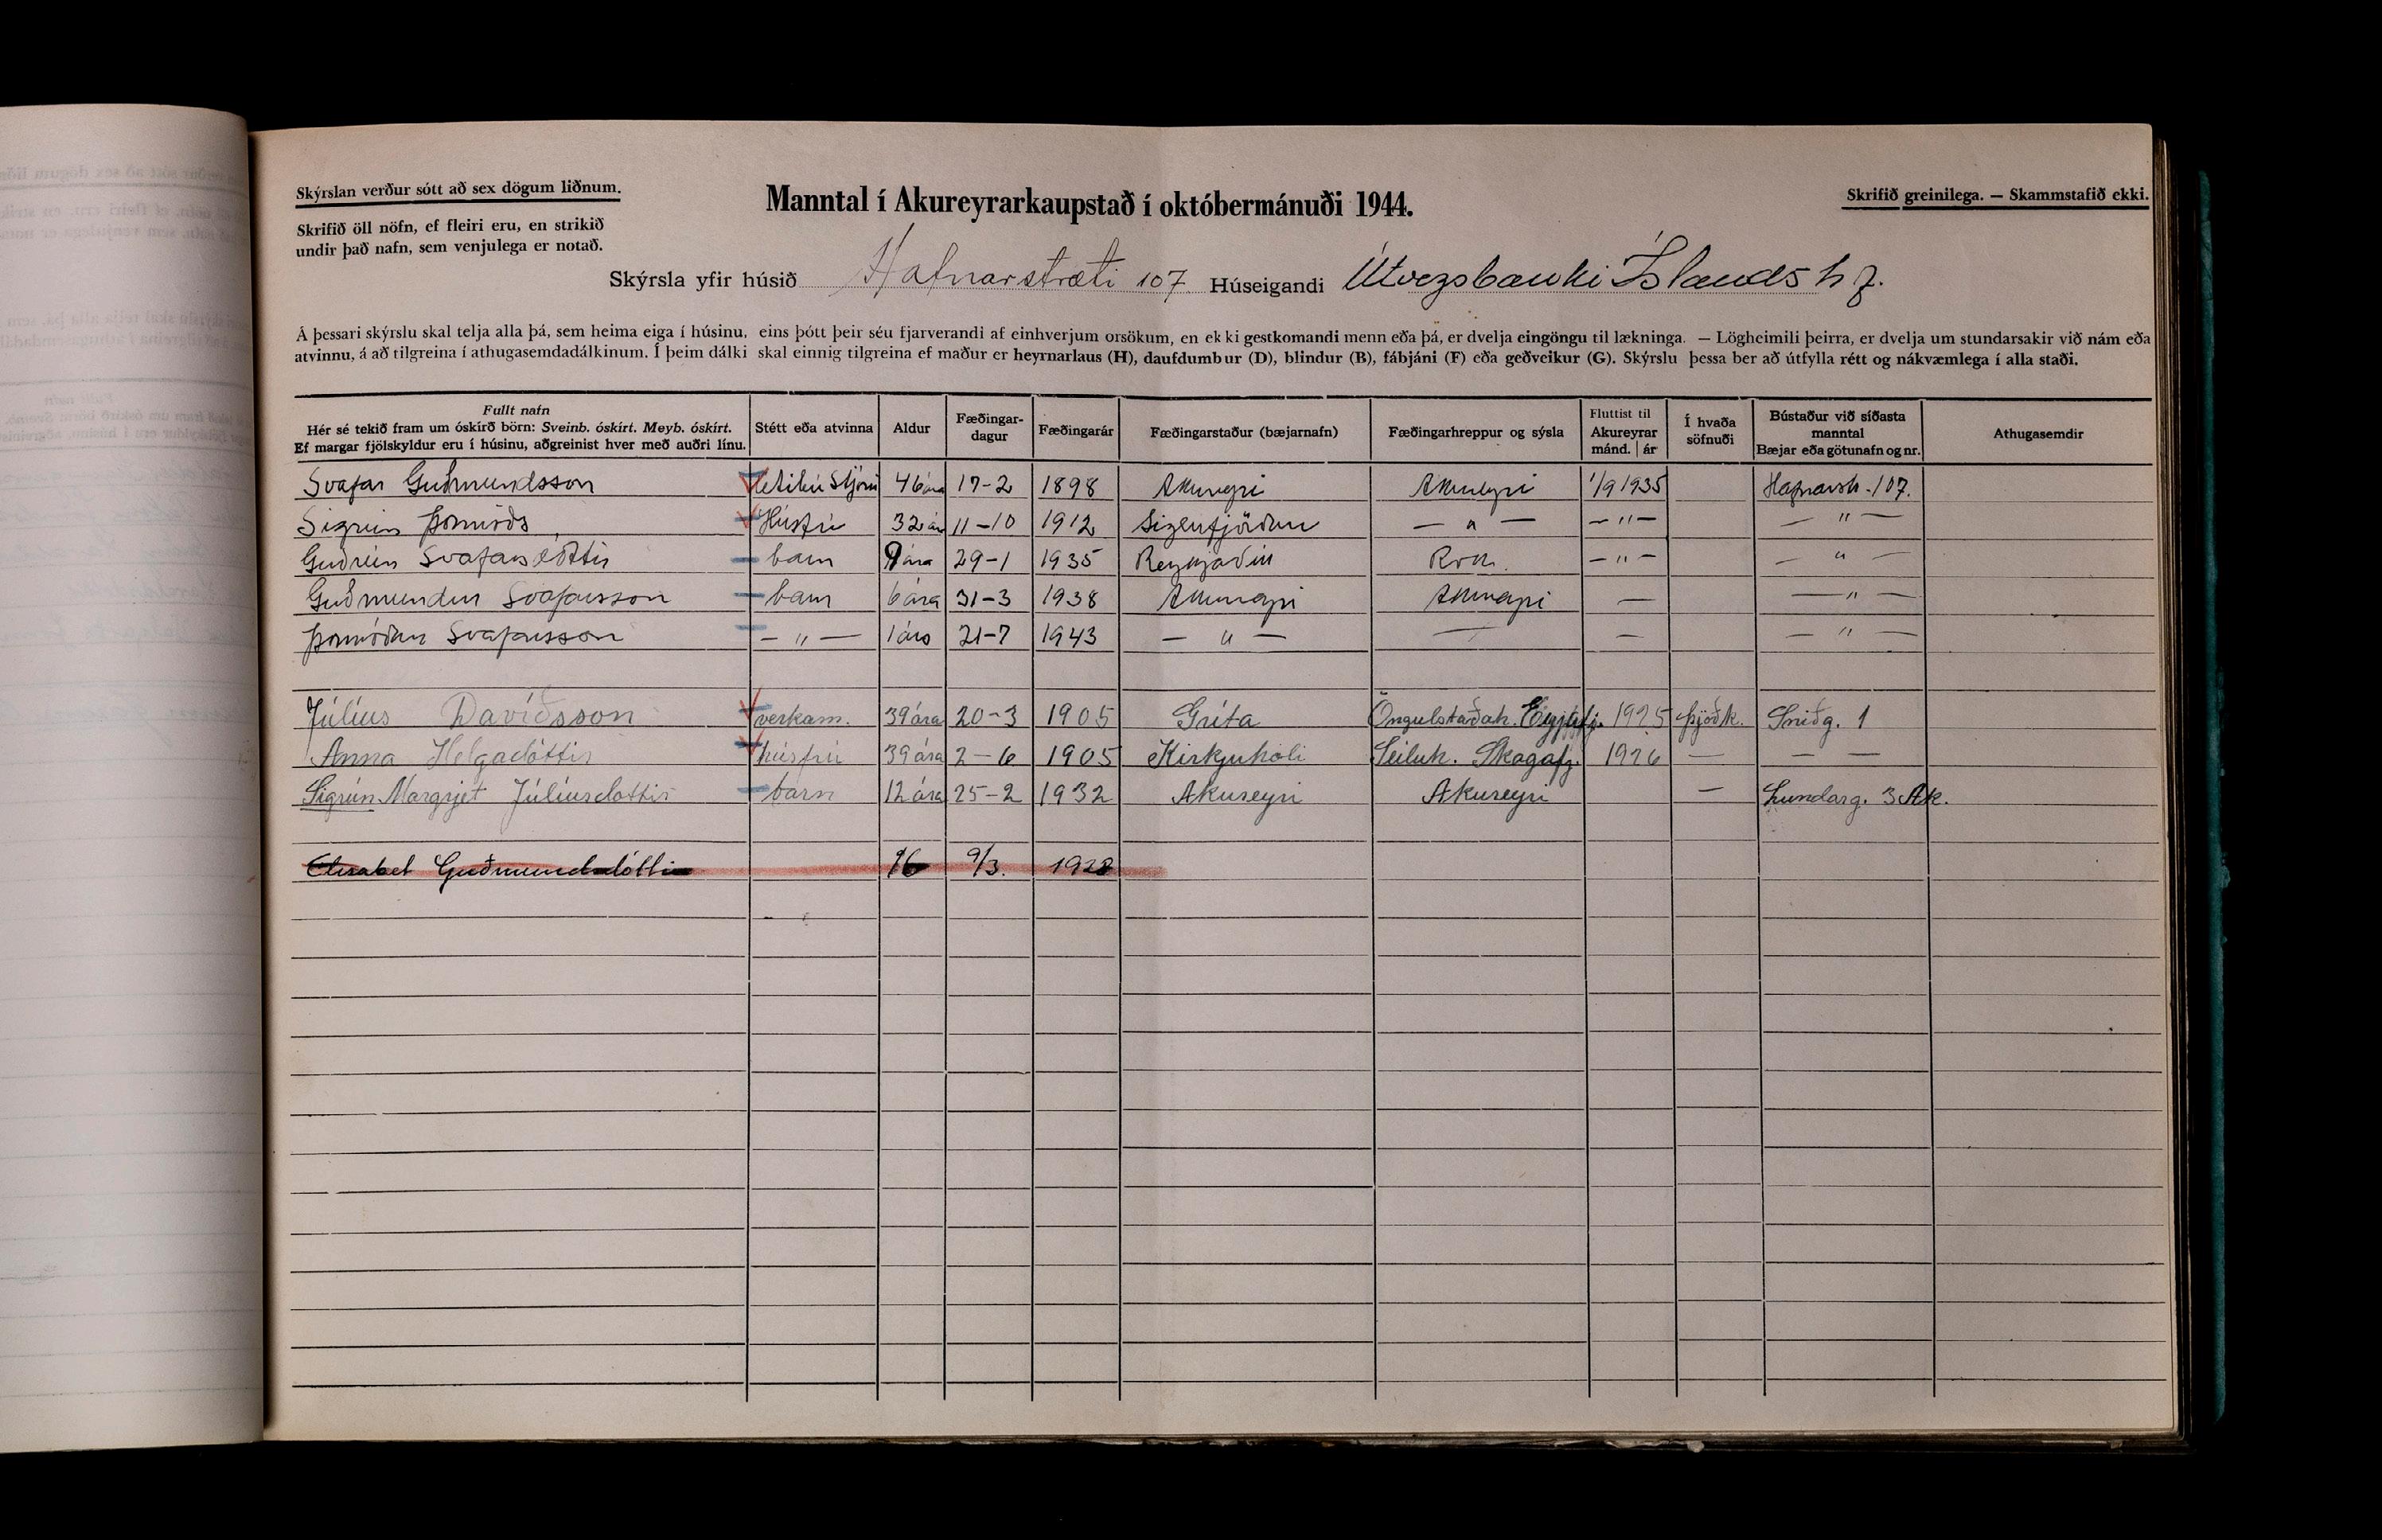 Skýrslan verður sótt að sex dögum liðnum.
Manntal í Akureyrarkaupstað í októbermánuði 1944.
Skrifið greinilega. — Skammstafið ekki.
Skrifið öll nöfn, ef fleiri eru, en strikið
undir það nafn, sem venjulega er notað.
Skýrsla yfir húsið Hafnarstræti 107 Húseigandi Útvegsbanki Íslands h f.
Á þessari skýrslu skal telja alla þá, sem heima eiga í húsinu, eins þótt þeir séu fjarverandi af einhverjum orsökum, en ekki gestkomandi menn eða þá, er dvelja eingöngu til lækninga. — Lögheimili þeirra, er dvelja um stundarsakir við nám eða
atvinnu, á að tilgreina í athugasemdadálkinum. Í þeim dálki skal einnig tilgreina ef maður er heyrnarlaus (H), daufdumbur (D), blindur (B), fábjáni (F) eða geðveikur (G). Skýrslu þessa ber að útfylla rétt og nákvæmlega í alla staði.
Fullt nafn
Hér sé tekið fram um óskírð börn: Sveinb. óskírt. Meyb. óskírt.
Ef margar fjölskyldur eru í húsinu, aðgreinist hver með auðri línu.
Stétt eða atvinna
Aldur
Fæðingar-
dagur
Fæðingarár
Fæðingarstaður (bæjarnafn)
Fæðingarhreppur og sýsla
Fluttist til
Akureyrar
mánd. | ár
Í hvaða
söfnuði
Bústaður við síðasta
manntal
Bæjar eða götunafn og nr.
Athugasemdir
Svafar Guðmundsson 46 ára 17-2 1898 Akureyri Akureyri 1/9 1935 Hafnarstr. 107.
Sigrún Þormóðs Húsfrú 32 ára 11-10 1912 Siglufjörður — " — — " — — " —
Guðrún Svafarsdóttir barn 9 ára 29-1 1935 Reykjavík Rvk. — " — — " —
Guðmundur Svafarsson barn 6 ára 31-3 1938 Akureyri Akureyri — — " —
Þormóður Svafarsson — " — 1 árs 21-7 1943 — " — — — — " —
Júlíus Davíðsson verkam. 39 ára 20-3 1905 Gríta Öngulstaðah. Eyjafj. 1925 Þjóðk. Smiðg. 1
Anna Helgadóttir húsfrú 39 ára 2-6 1905 Kirkjuhóli Seiluh. Skagafj. 1926 — — —
Sigrún Margrjet Júlíusdóttir barn 12 ára 25-2 1932 Akureyri Akureyri — Lundarg. 3 Ak.
Elisabet Guðmundsdóttir 16 9/3. 1928